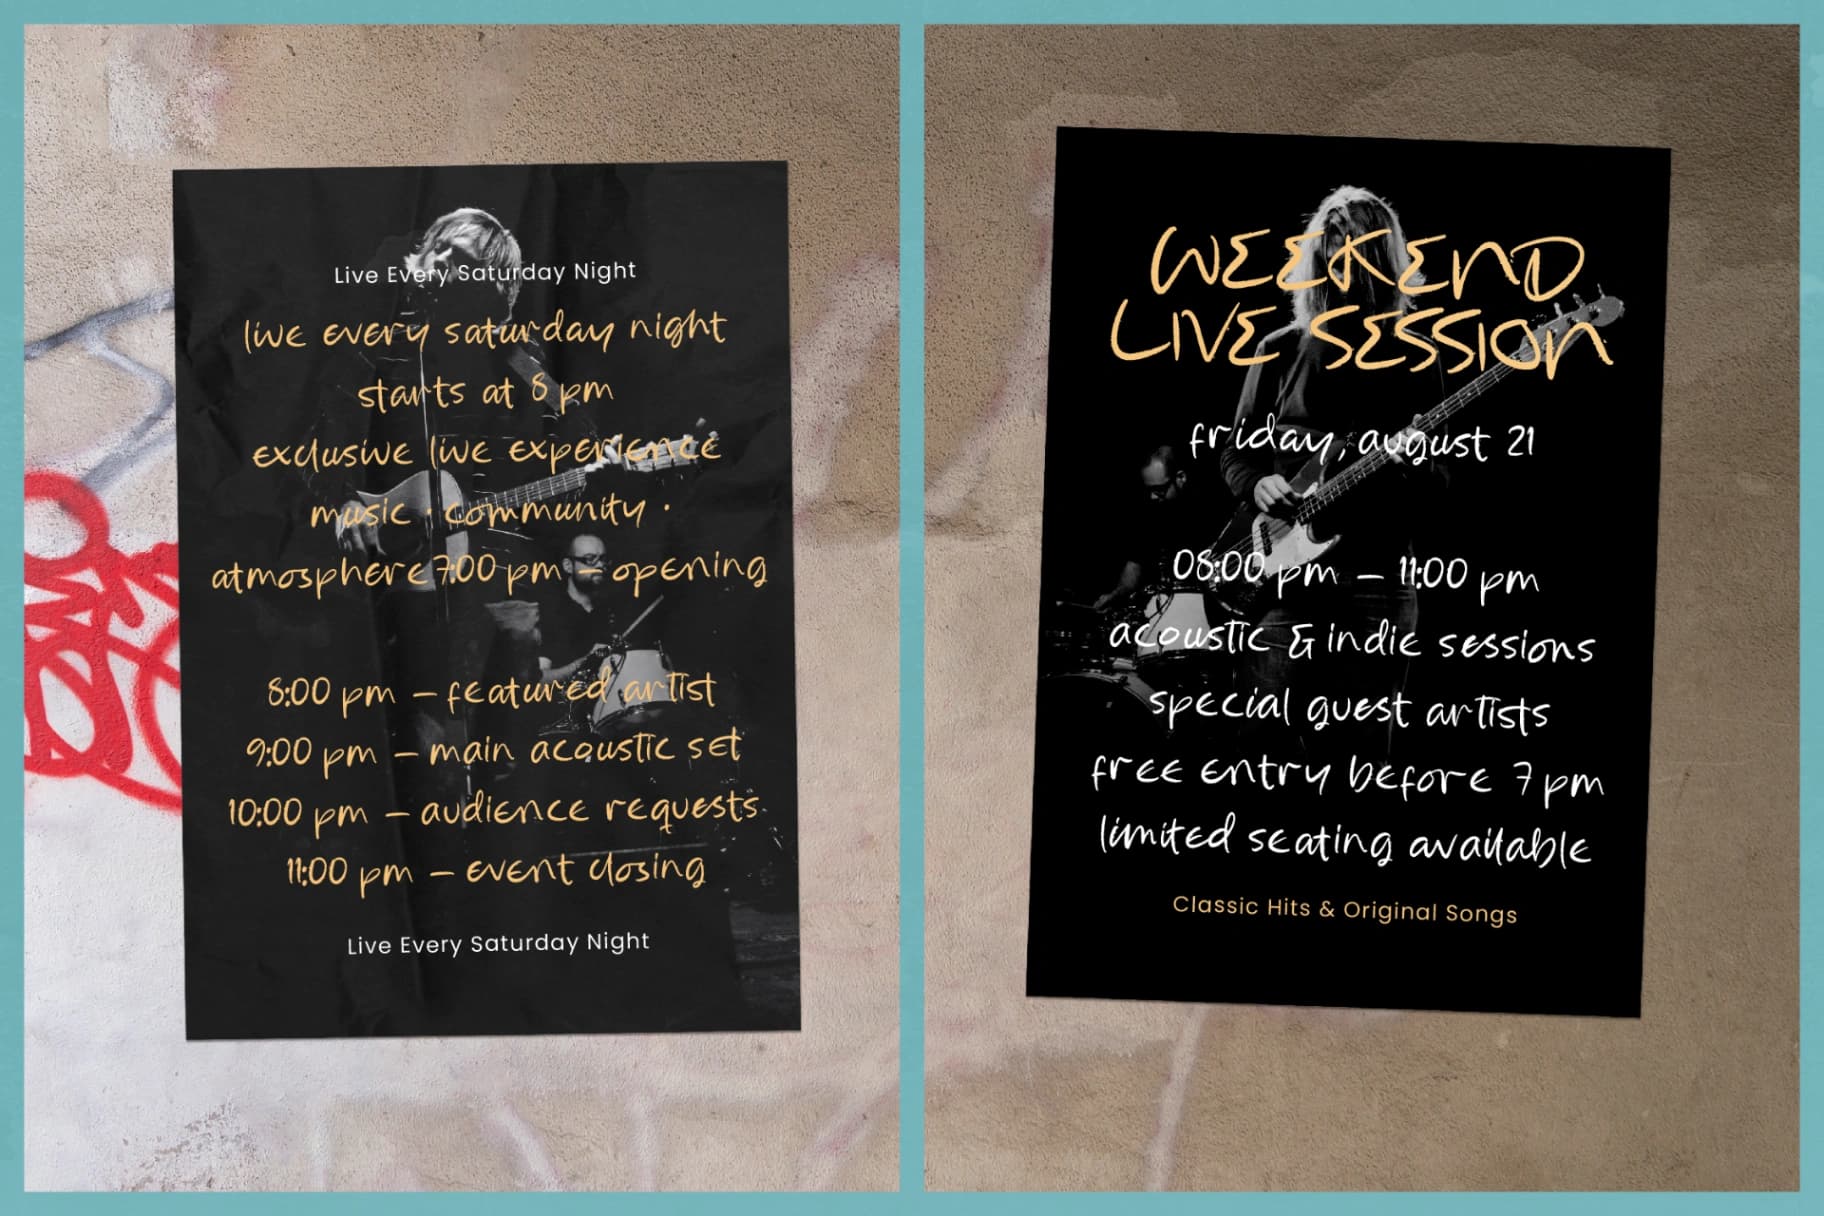 Live Every Saturday Night
live every saturday night
starts at 8 pm
exclusive live experience
music · community ·
atmosphere 7:00 pm – opening
8:00 pm – featured artist
9:00 pm – main acoustic set
10:00 pm – audience requests
11:00 pm – event closing
Live Every Saturday Night
WEEKEND
LIVE SESSION
friday, august 21
08:00 pm – 11:00 pm
acoustic & indie sessions
special guest artists
free entry before 7 pm
limited seating available
Classic Hits & Original Songs